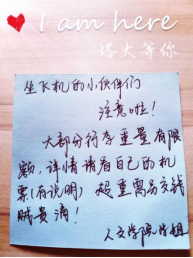 I am here
塔大等你
坐飞机的小伙伴们
注意啦！
大部分行李重量有限
额，详情请看自己的机
票(有说明) 超重需另交钱
贼贵滴！
人文学院学姐